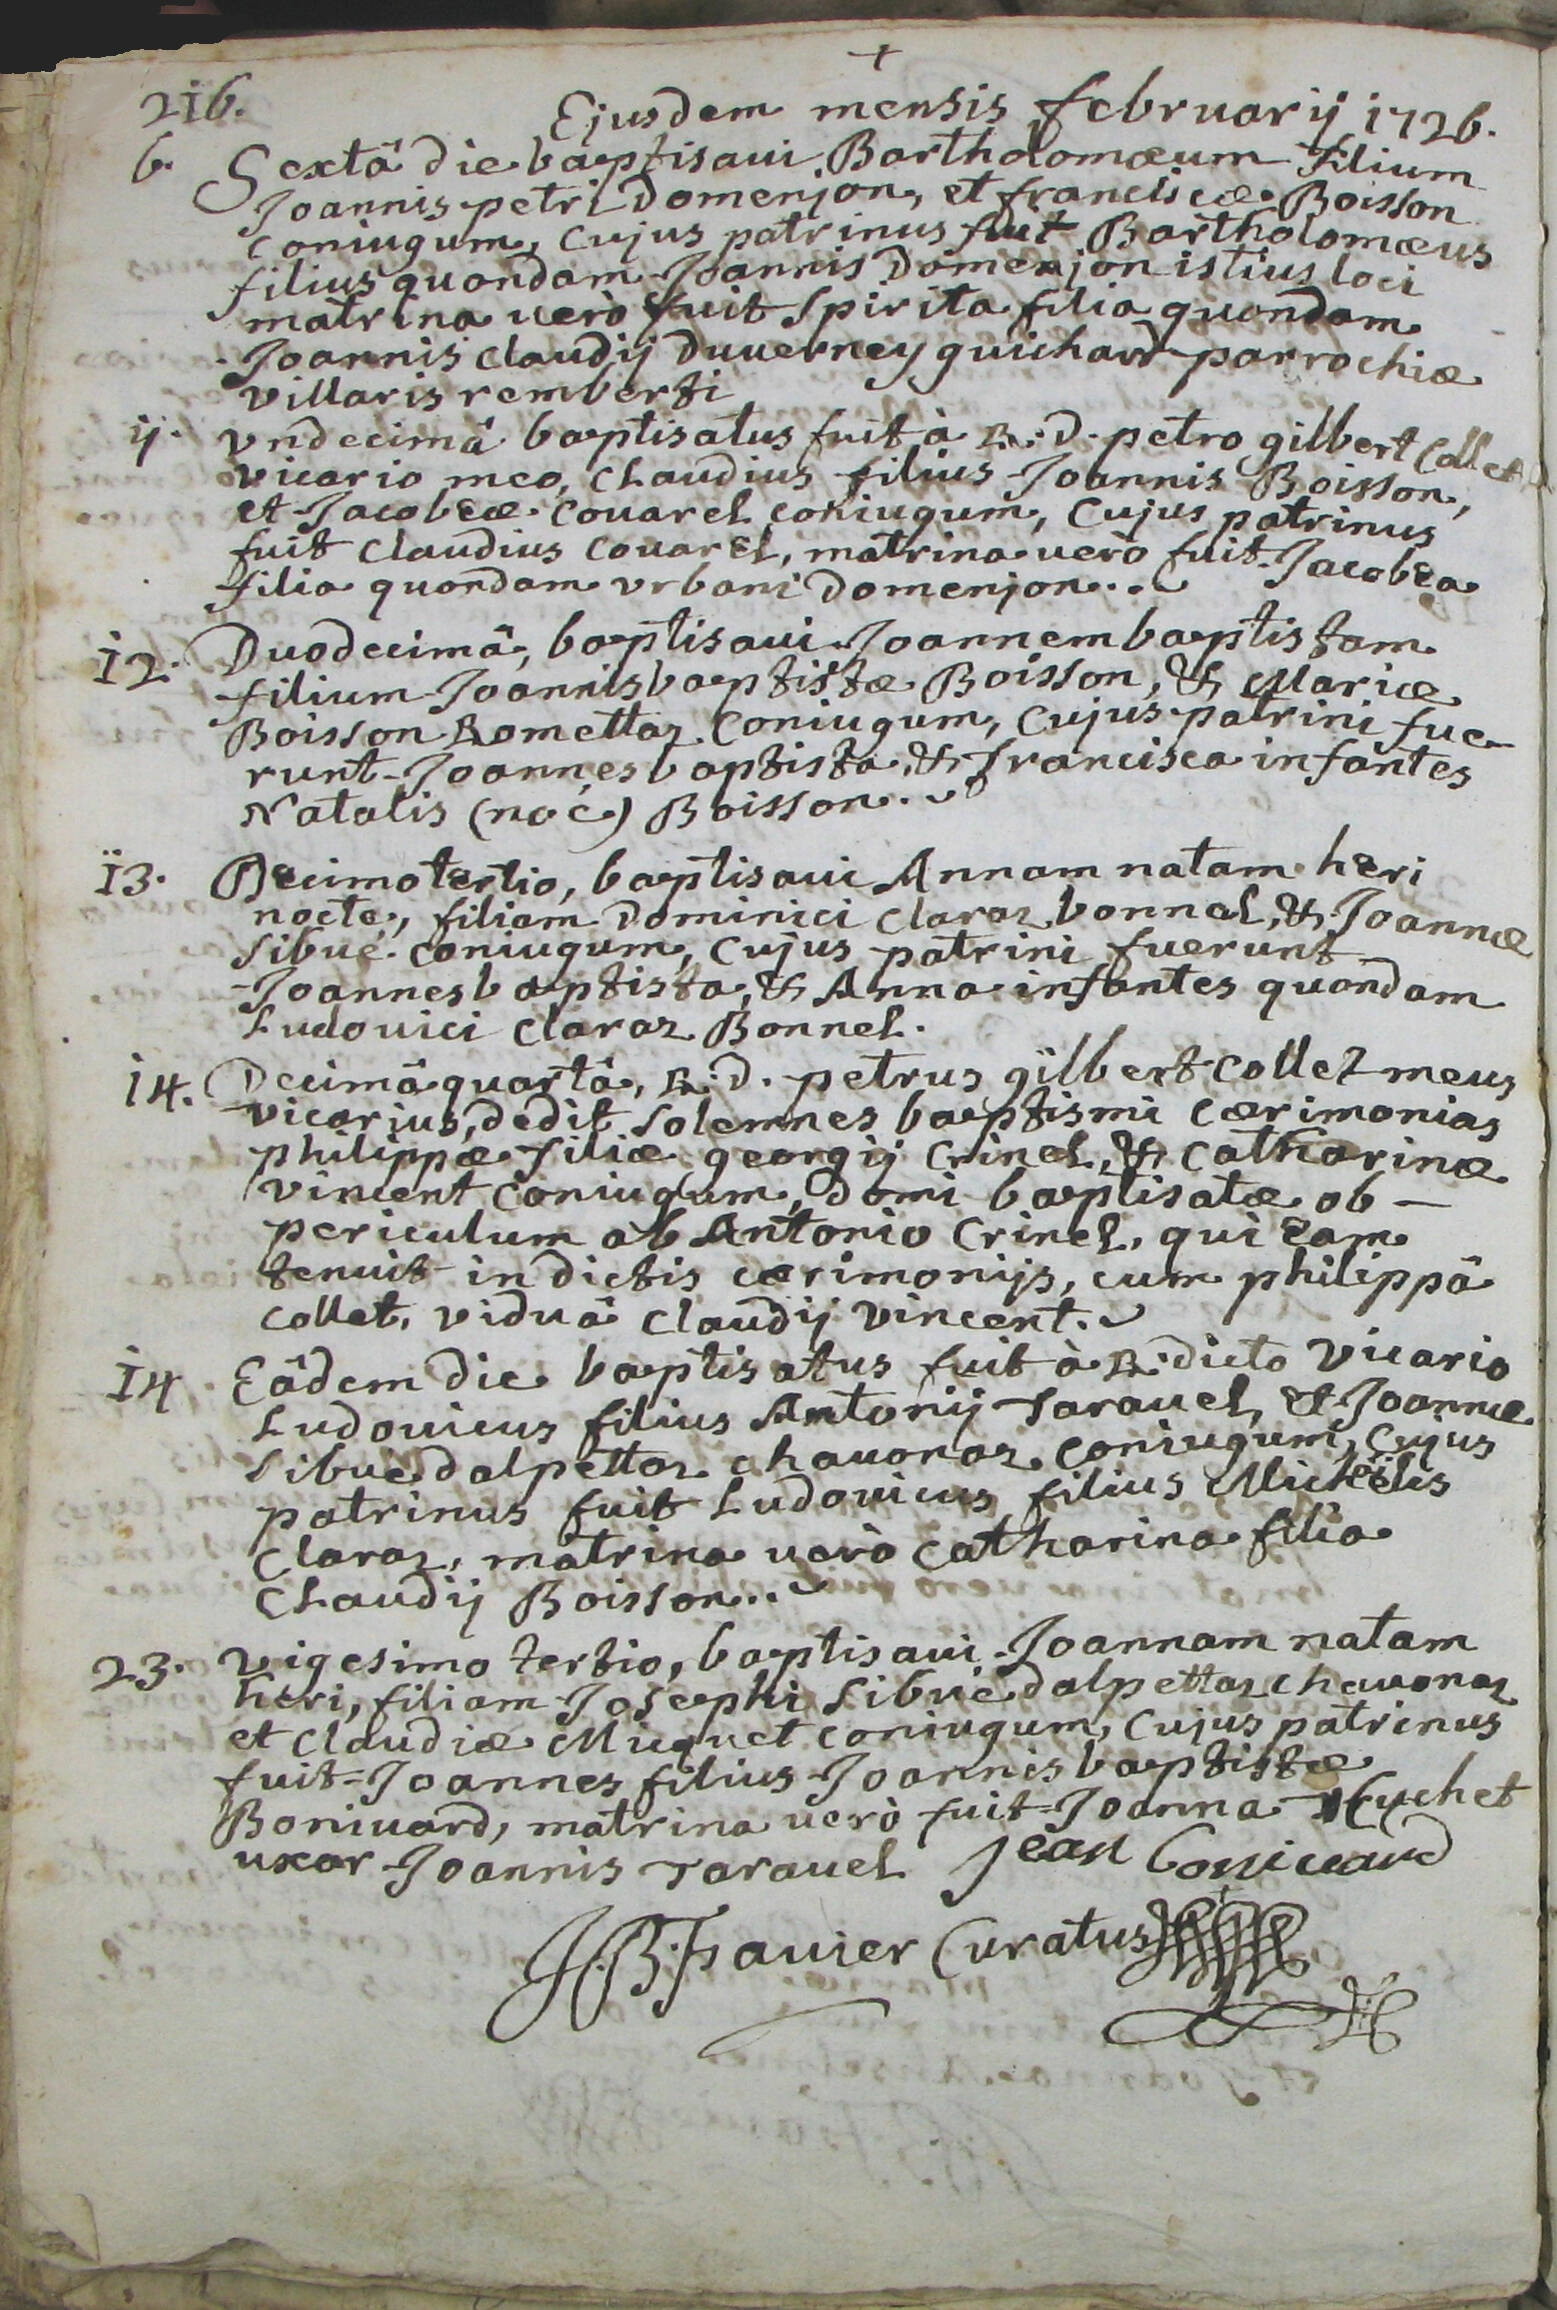 +
216.
Ejusdem mensis februarij 1726.
6. Sextâ die baptisaui Bartholomæum filium
Joannis petri Domenjon, et franciscæ Boisson
coniugum, cujus patrinus fuit Bartholomæus
filius quondam Joannis Domenjon istius loci
matrina uerò fuit Spirita filia quondam
Joannis claudij Duuerney guichard parrochiæ
villaris remberti
ij. vndecimâ baptisatus fuit à R:D. petro gilbert Collet
vicario meo, claudius filius Joannis Boisson,
et Jacobeæ couarel coniugum, cujus patrinus
fuit claudius couarel, matrina uerò fuit Jacobea
filia quondam vrbani Domenjon..
12. Duodecimâ, baptisaui Joannem baptistam
filium Joannis baptistæ Boisson, & Mariæ
Boisson Romettaz coniugum, cujus patrini fue-
runt Joannes baptista, & francisca infantes
Natalis (noé) Boisson.
13. Decimo tertio, baptisaui Annam natam heri
nocte, filiam Dominici claraz bonnel, & Joannæ
Sibué coniugum, cujus patrini fuerunt
Joannes baptista, & Anna infantes quondam
Ludouici claraz Bonnel.
14. Decimâ quartâ, R:D. petrus gilbert collet meus
vicarius, dedit solemnes baptismi cærimonias
philippæ filiæ georgij crinel, & catharinæ
vincent coniugum, domi baptisatæ ob
periculum ab Antonio crinel, qui eam
tenuit in dictis cærimonijs, cum philippâ
collet, viduâ claudij vincent.
14. Eâdem die baptisatus fuit à R: dicto vicario
Ludouicus filius Antonij Tarauel, & Joannæ
Sibué dalpettaz chauonaz coniugum, cujus
patrinus fuit Ludouicus filius Michëlis
claraz, matrina uerò catharina filia
claudij Boisson..
23. vigesimo tertio, baptisaui Joannam natam
heri, filiam Josephi Sibué dalpettaz chauonaz
et claudiæ Muguet coniugum, cujus patrinus
fuit Joannes filius Joannis baptistæ
Boniuard, matrina uerò fuit Joanna
uxor Joannis Tarauel Jean Boniuard
J.B. Frauier Curatus